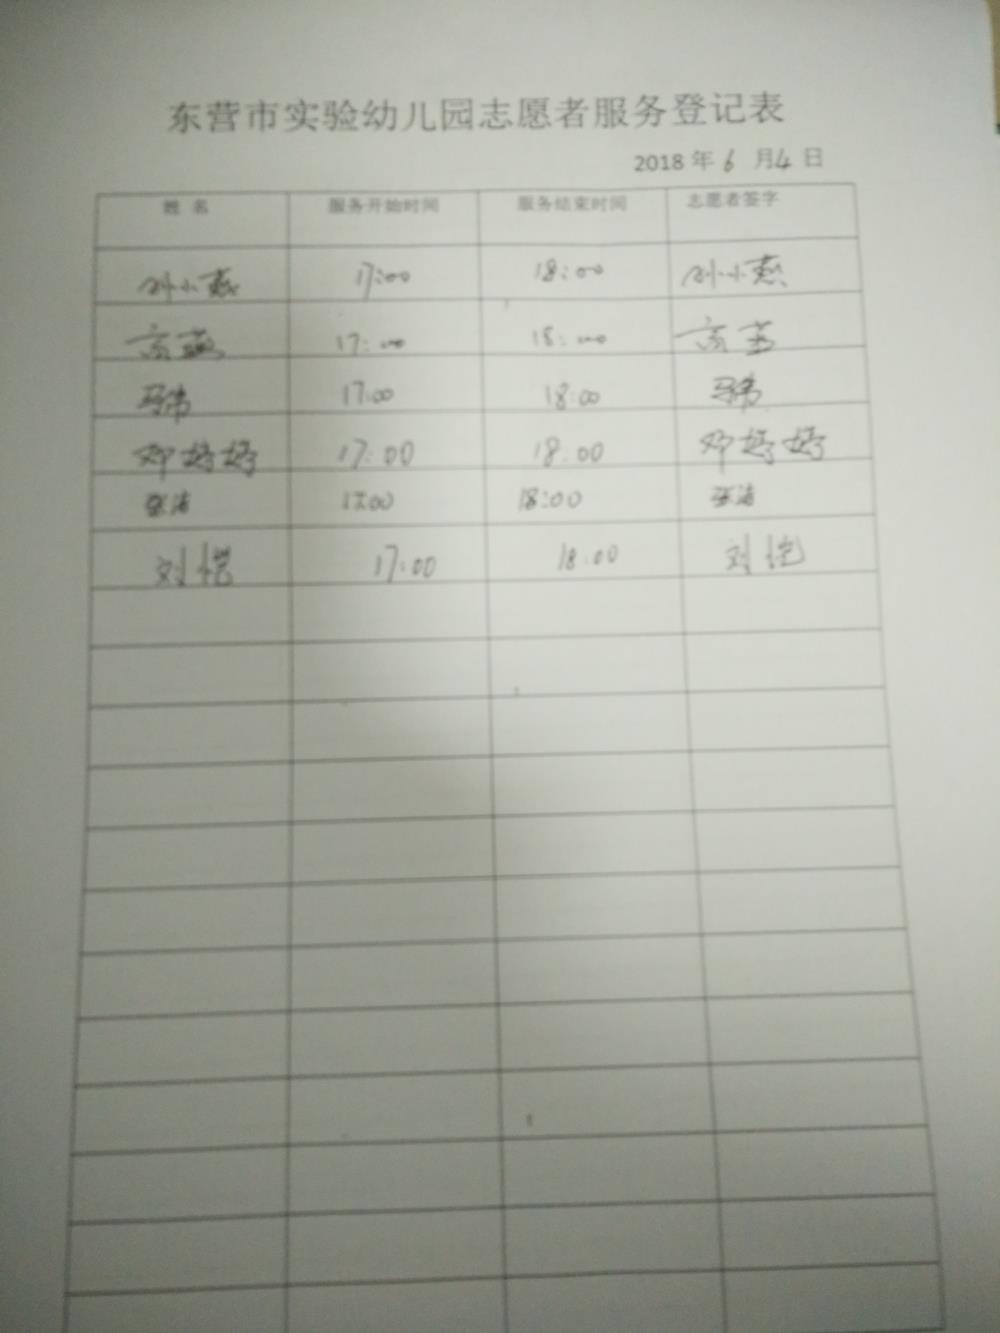 东营市实验幼儿园志愿者服务登记表
2018 年 6 月 4 日
姓 名 服务开始时间 服务结束时间 志愿者签字
孙小燕 17:00 18:00 孙小燕
高燕 17:00 18:00 高燕
马伟 17:00 18:00 马伟
邓婷婷 17:00 18:00 邓婷婷
张涛 17:00 18:00 张涛
刘恺 17:00 18:00 刘恺